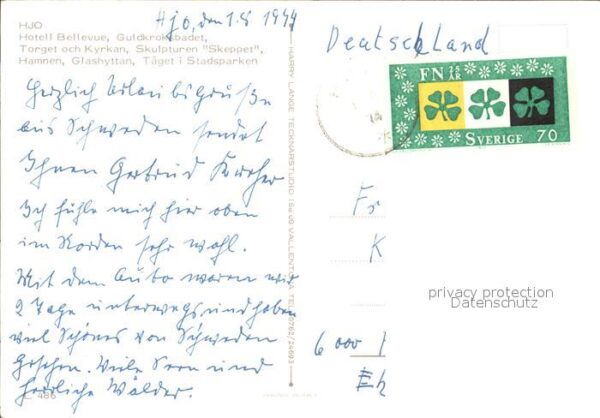 Hjo, den 1.8 1974
HJO
Hotell Bellevue, Guldkroksbadet,
Torget och Kyrkan, Skulpturen "Skeppet",
Hamnen, Glashyttan, Tåget i Stadsparken
Herzlich Urlaubsgrüße
aus Schweden sendet
Ihnen Gertrud
Ich fühle mich hier oben
im Norden sehr wohl.
Mit dem Auto waren wir
2 Tage unterwegs und haben
viel Schönes von Schweden
gesehen. Viele Seen und
herrliche Wälder.
486
HARRY LANGE TECKNARSTUDIO
Deutschland
FN 25 ÅR
SVERIGE 70
Fr
K
privacy protection
Datenschutz
6000 F